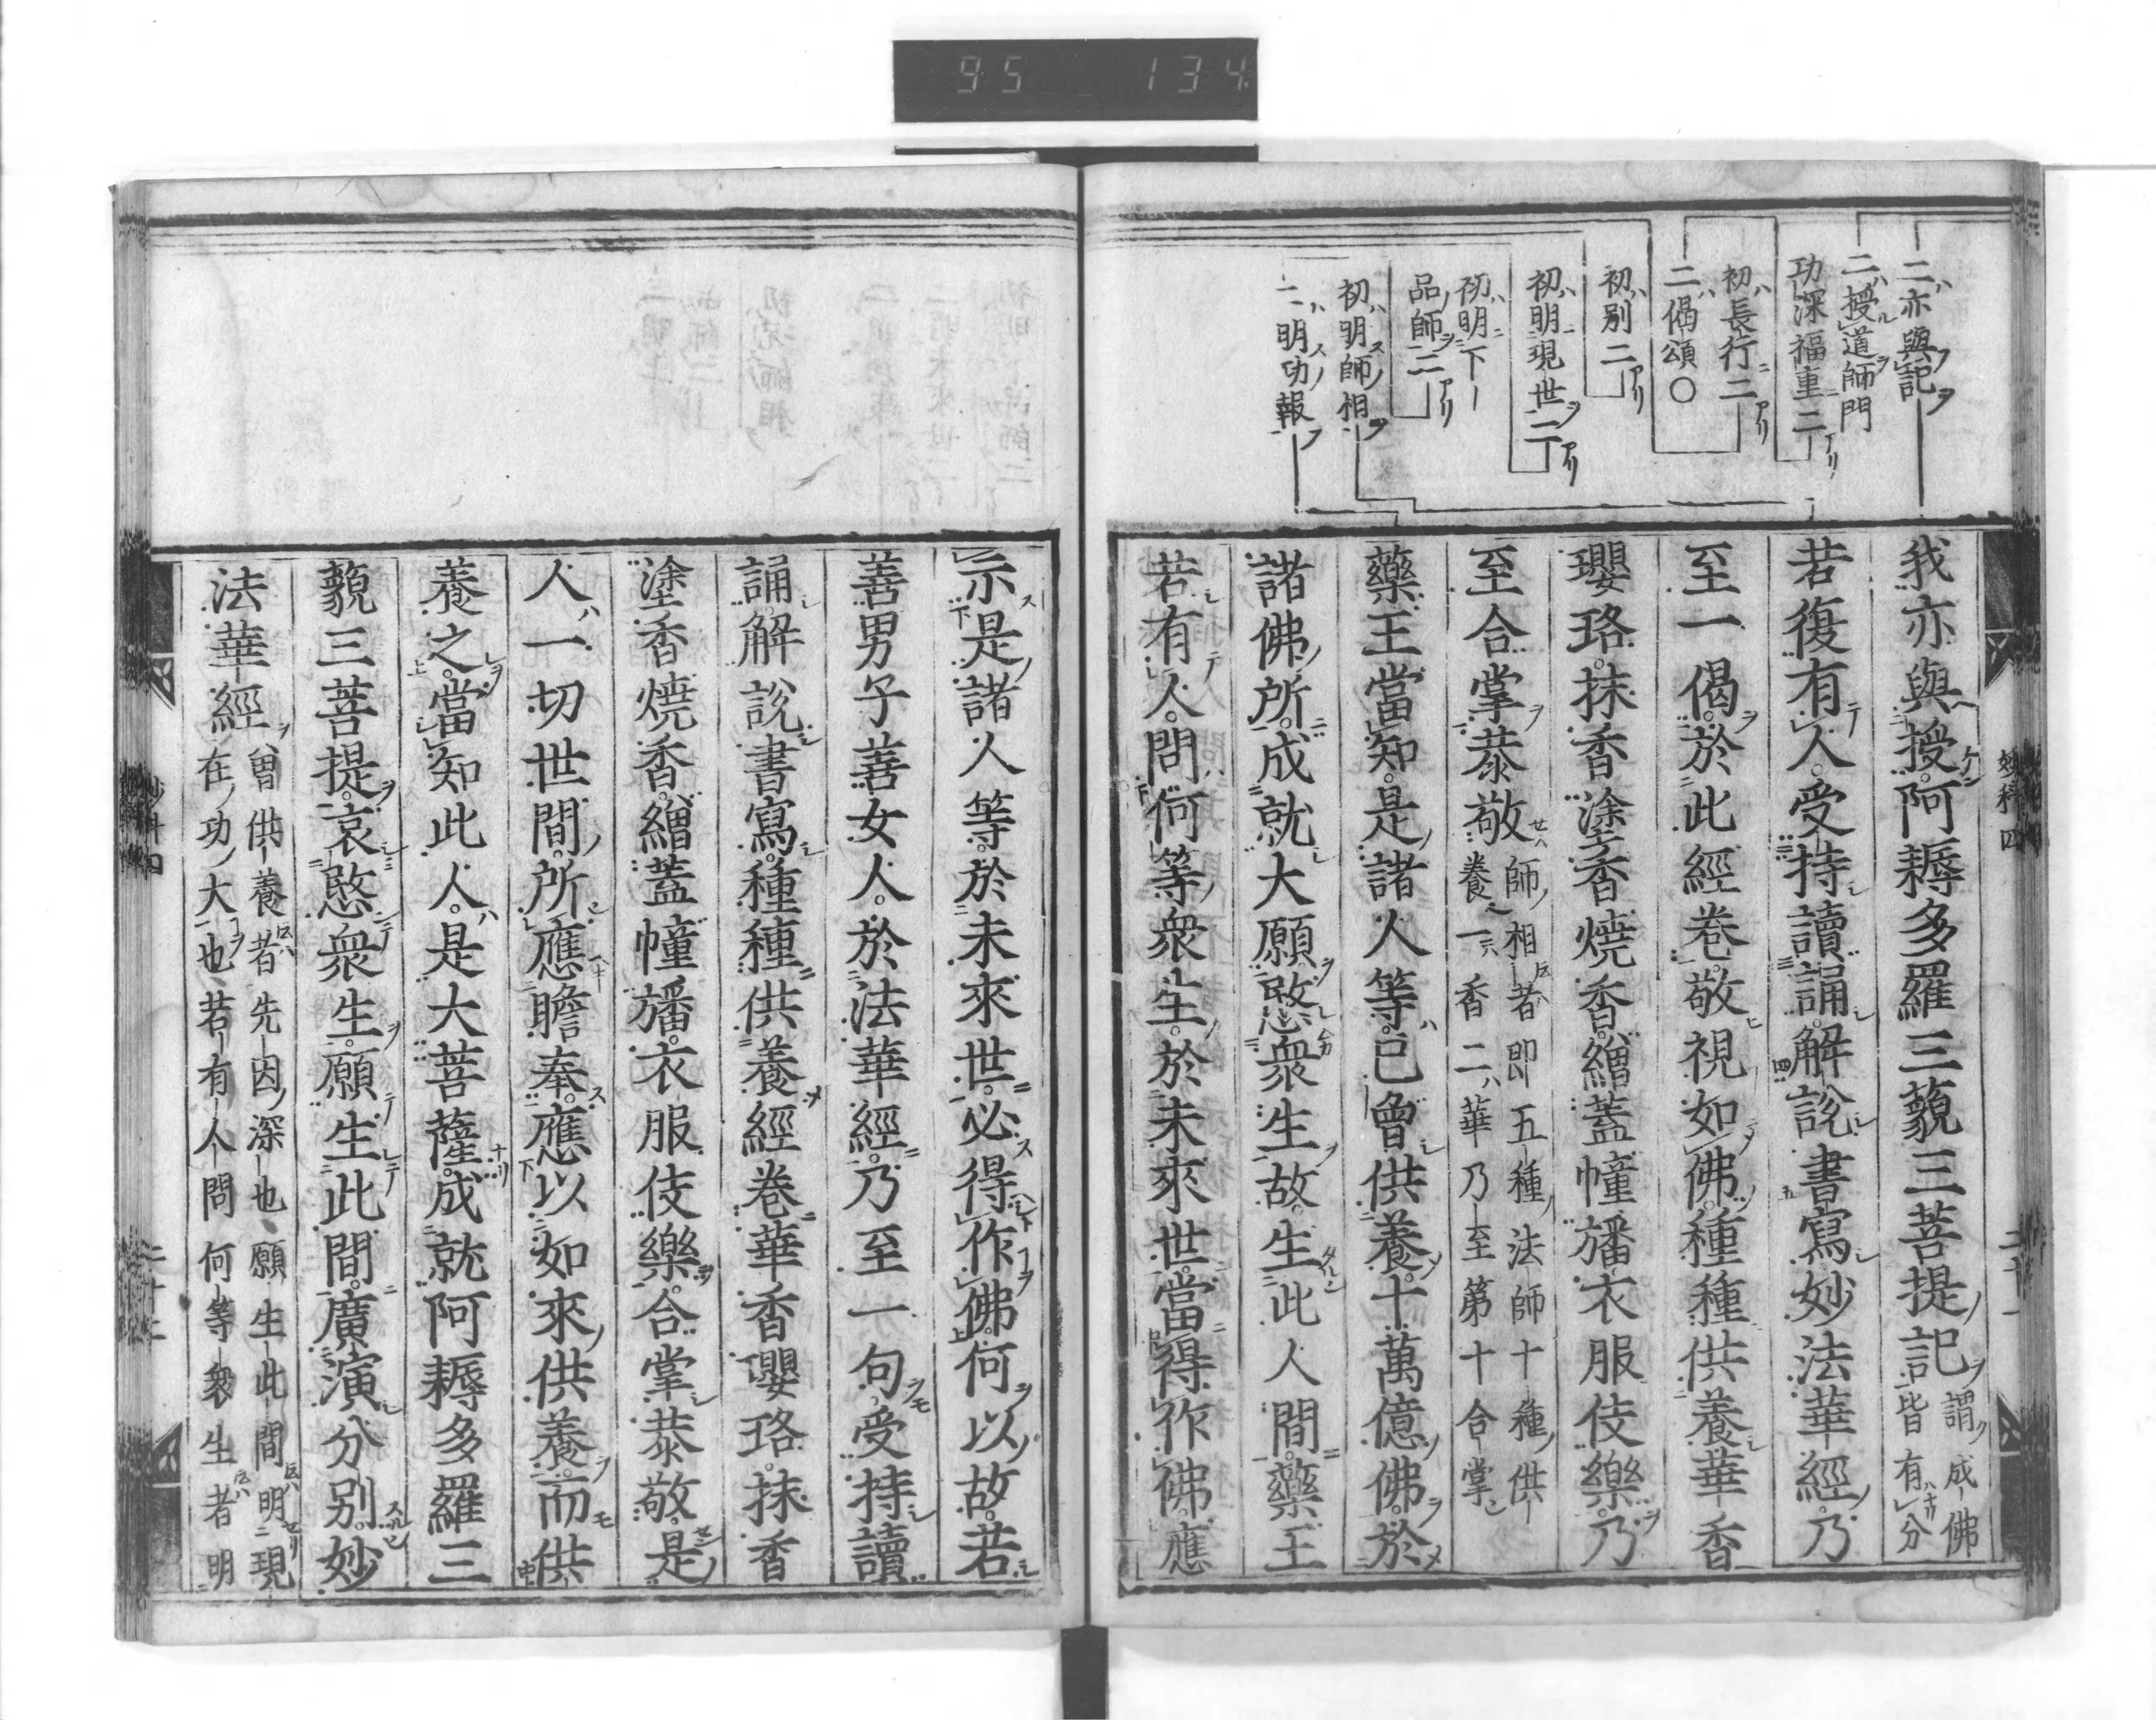 95 134
二亦與記
二授道師門
功深福重二
初長行二
二偈頌〇
初別二
初明現世二
初明下
品師二
初明師相
二明功報
妙科四
二十一
我亦與授阿耨多羅三藐三菩提記謂成佛
皆有分
若復有人受持讀誦解說書寫妙法華經乃
至一偈於此經卷敬視如佛種種供養華香
瓔珞抹香塗香燒香繒蓋幢旛衣服伎樂乃
至合掌恭敬師相者即五種法師十種供
養一香二華乃至第十合掌
藥王當知是諸人等已曾供養十萬億佛於
諸佛所成就大願愍衆生故生此人間藥王
若有人問何等衆生於未來世當得作佛應
示是諸人等於未來世必得作佛何以故若
善男子善女人於法華經乃至一句受持讀
誦解說書寫種種供養經卷華香瓔珞抹香
塗香燒香繒蓋幢旛衣服伎樂合掌恭敬是
人一切世間所應瞻奉應以如來供養而供
養之當知此人是大菩薩成就阿耨多羅三
藐三菩提哀愍衆生願生此間廣演分別妙
法華經曾供養者先因深也願生此間明現
在功大也若有人問何等衆生者明
妙科四
二十二